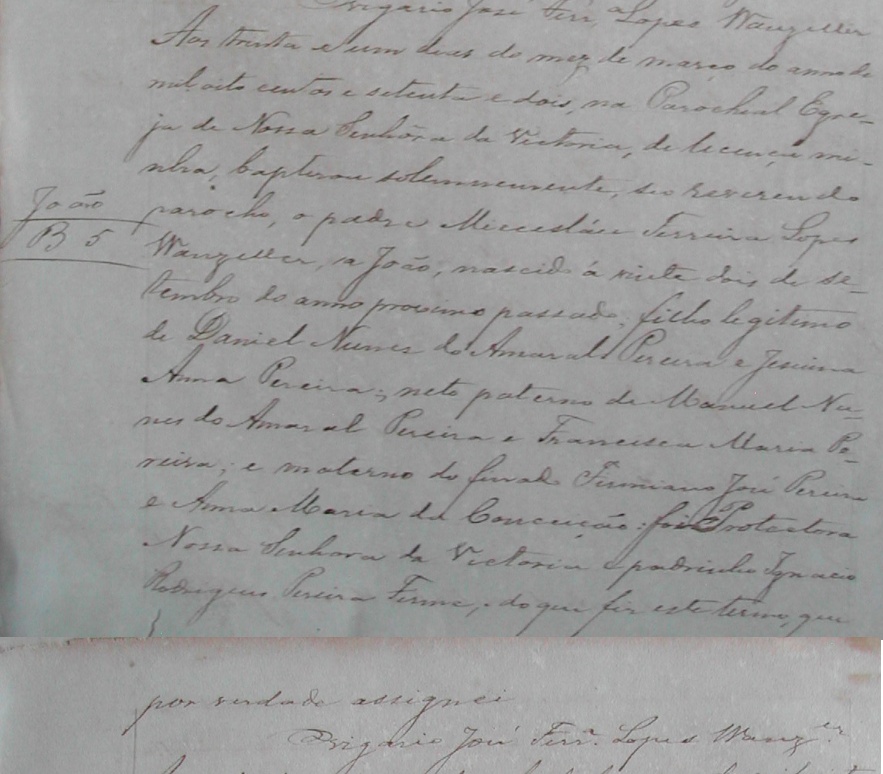 Vigario José Ferr.ª Lopes Wanzeller
Aos trinta e um dias do mez de março do anno de
mil oito centos e setenta e dois, na Parochial Egre-
ja de Nossa Senhóra da Victoria, de licença mi-
nha, baptizou solemnemente, seo reverendo
parocho, o padre Miecesláu Ferreira Lopes
Wanzeller, a João, nascido á vinte dois de se-
tembro do anno proximo passado, filho legitimo
de Daniel Nunes do Amaral Pereira e Jesuina
Anna Pereira; neto paterno de Manuel Nu-
nes do Amaral Pereira e Francisca Maria Pe-
reira; e materno do finado Firmiano José Pereira
e Anna Maria da Conceição: foi Protectora
Nossa Senhora da Victoria e padrinho Ignacio
Rodrigues Pereira Firme, do que fiz este termo, que
João
B 5
por verdade assignei
Vigario José Ferr.ª Lopes Wanz.er